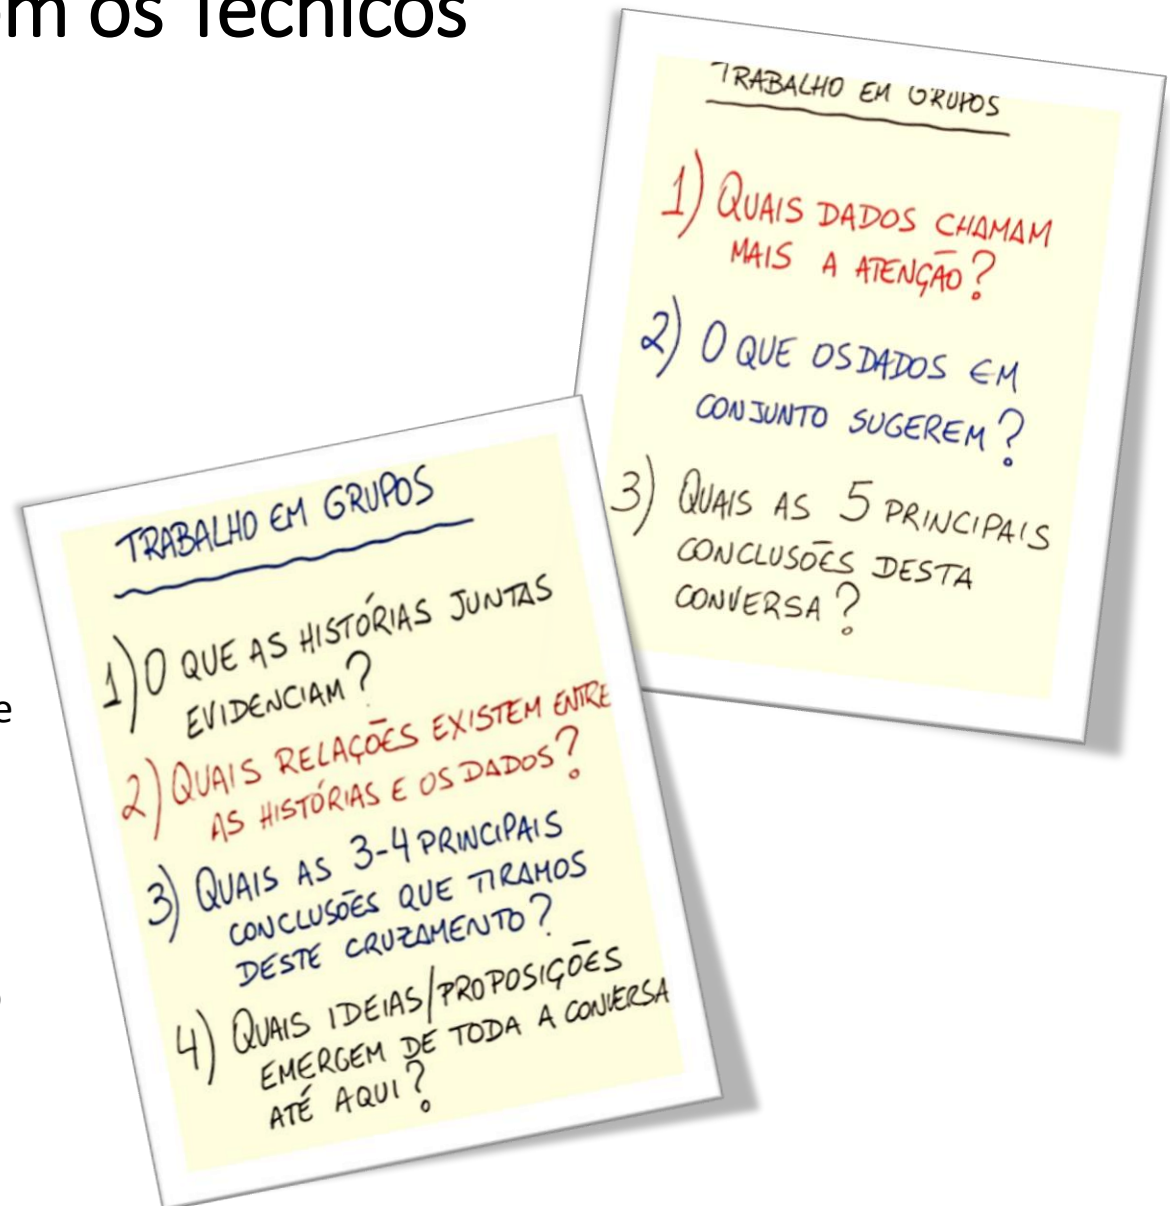 m os Técnicos
TRABALHO EM GRUPOS
1) QUAIS DADOS CHAMAM
MAIS A ATENÇÃO?
2) O QUE OS DADOS EM
CONJUNTO SUGEREM?
3) QUAIS AS 5 PRINCIPAIS
CONCLUSÕES DESTA
CONVERSA?
TRABALHO EM GRUPOS
1) O QUE AS HISTÓRIAS JUNTAS
EVIDENCIAM?
2) QUAIS RELAÇÕES EXISTEM ENTRE
AS HISTÓRIAS E OS DADOS?
3) QUAIS AS 3-4 PRINCIPAIS
CONCLUSÕES QUE TIRAMOS
DESTE CRUZAMENTO?
4) QUAIS IDEIAS/PROPOSIÇÕES
EMERGEM DE TODA A CONVERSA
ATÉ AQUI?
e